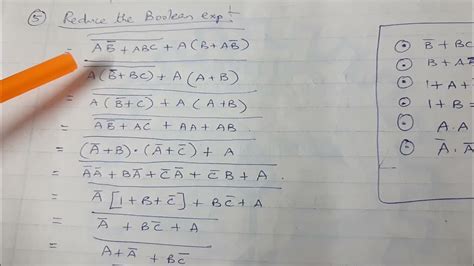 ⑤ Reduce the Boolean exp!
= AB̅ + ABC + A(B + AB̅)
A(B̅ + BC) + A(A + B)
= A(B̅ + C) + A(A + B)
= AB̅ + AC + AA + AB .
= (A̅ + B) · (A̅ + C̅) + A
= A̅A̅ + BA̅ + A̅C̅ + C̅B + A .
= A̅[1 + B + C̅] + BC̅ + A
= A̅ + BC̅ + A
= A + A̅ + BC̅
⊙ B̅ + BC
⊙ B + A
⊙ 1 + A
⊙ 1 + B =
⊙ A . A
⊙ A . A̅